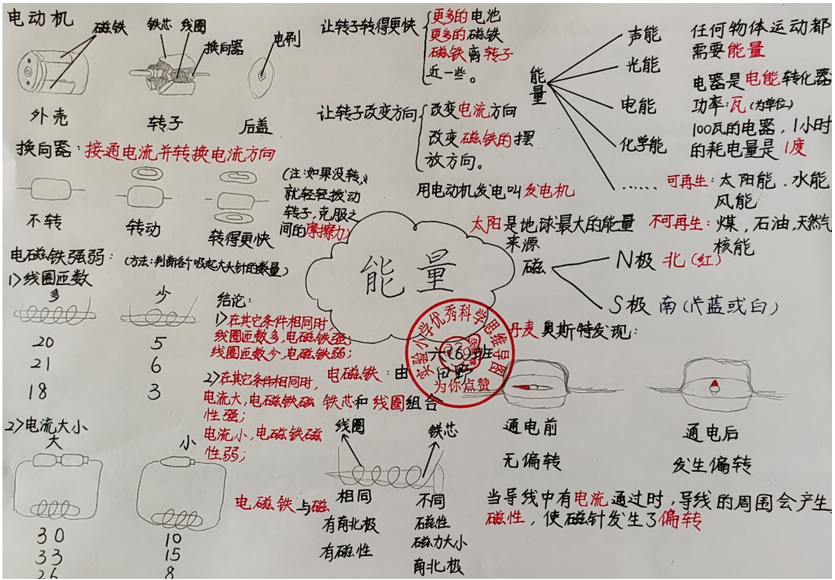 电动机
磁铁
铁芯 线圈
换向器
电刷
外壳
转子
后盖
换向器：接通电流并转换电流方向
不转
转动
转得更快
(注：如果没转，
就轻轻拨动
转子，克服之
间的摩擦力)
电磁铁强弱：
(方法：判断各个吸起大头针的数量)
1)线圈匝数
多
少
20
5
21
6
18
3
2)电流大小
大
小
30
10
33
15
26
8
结论：
1)在其它条件相同时
线圈匝数多，电磁铁强；
线圈匝数少，电磁铁弱；
2)在其它条件相同时，
电流大，电磁铁磁
性强；
电流小，电磁铁磁
性弱；
让转子转得更快
更多的电池
更多的磁铁
磁铁离转子
近一些。
让转子改变方向
改变电流方向
改变磁铁的摆
放方向。
用电动机发电叫发电机
能量
六(6)班
田野
实验小学优秀科学思维导图
为你点赞
电磁铁：由
铁芯和线圈组合
线圈
铁芯
电磁铁与磁
相同
有南北极
有磁性
不同
磁性
磁力大小
南北极
能量
声能
光能
电能
化学能
……
任何物体运动都
需要能量
电器是电能转化器
功率：瓦(为单位)
100瓦的电器，1小时
的耗电量是1度
可再生：太阳能，水能，
风能
不可再生：煤，石油，天然气
核能
太阳是地球最大的能量
来源
磁
N极 北(红)
S极 南(片蓝或白)
丹麦奥斯特发现：
通电前
无偏转
通电后
发生偏转
当导线中有电流通过时，导线的周围会产生
磁性，使磁针发生了偏转